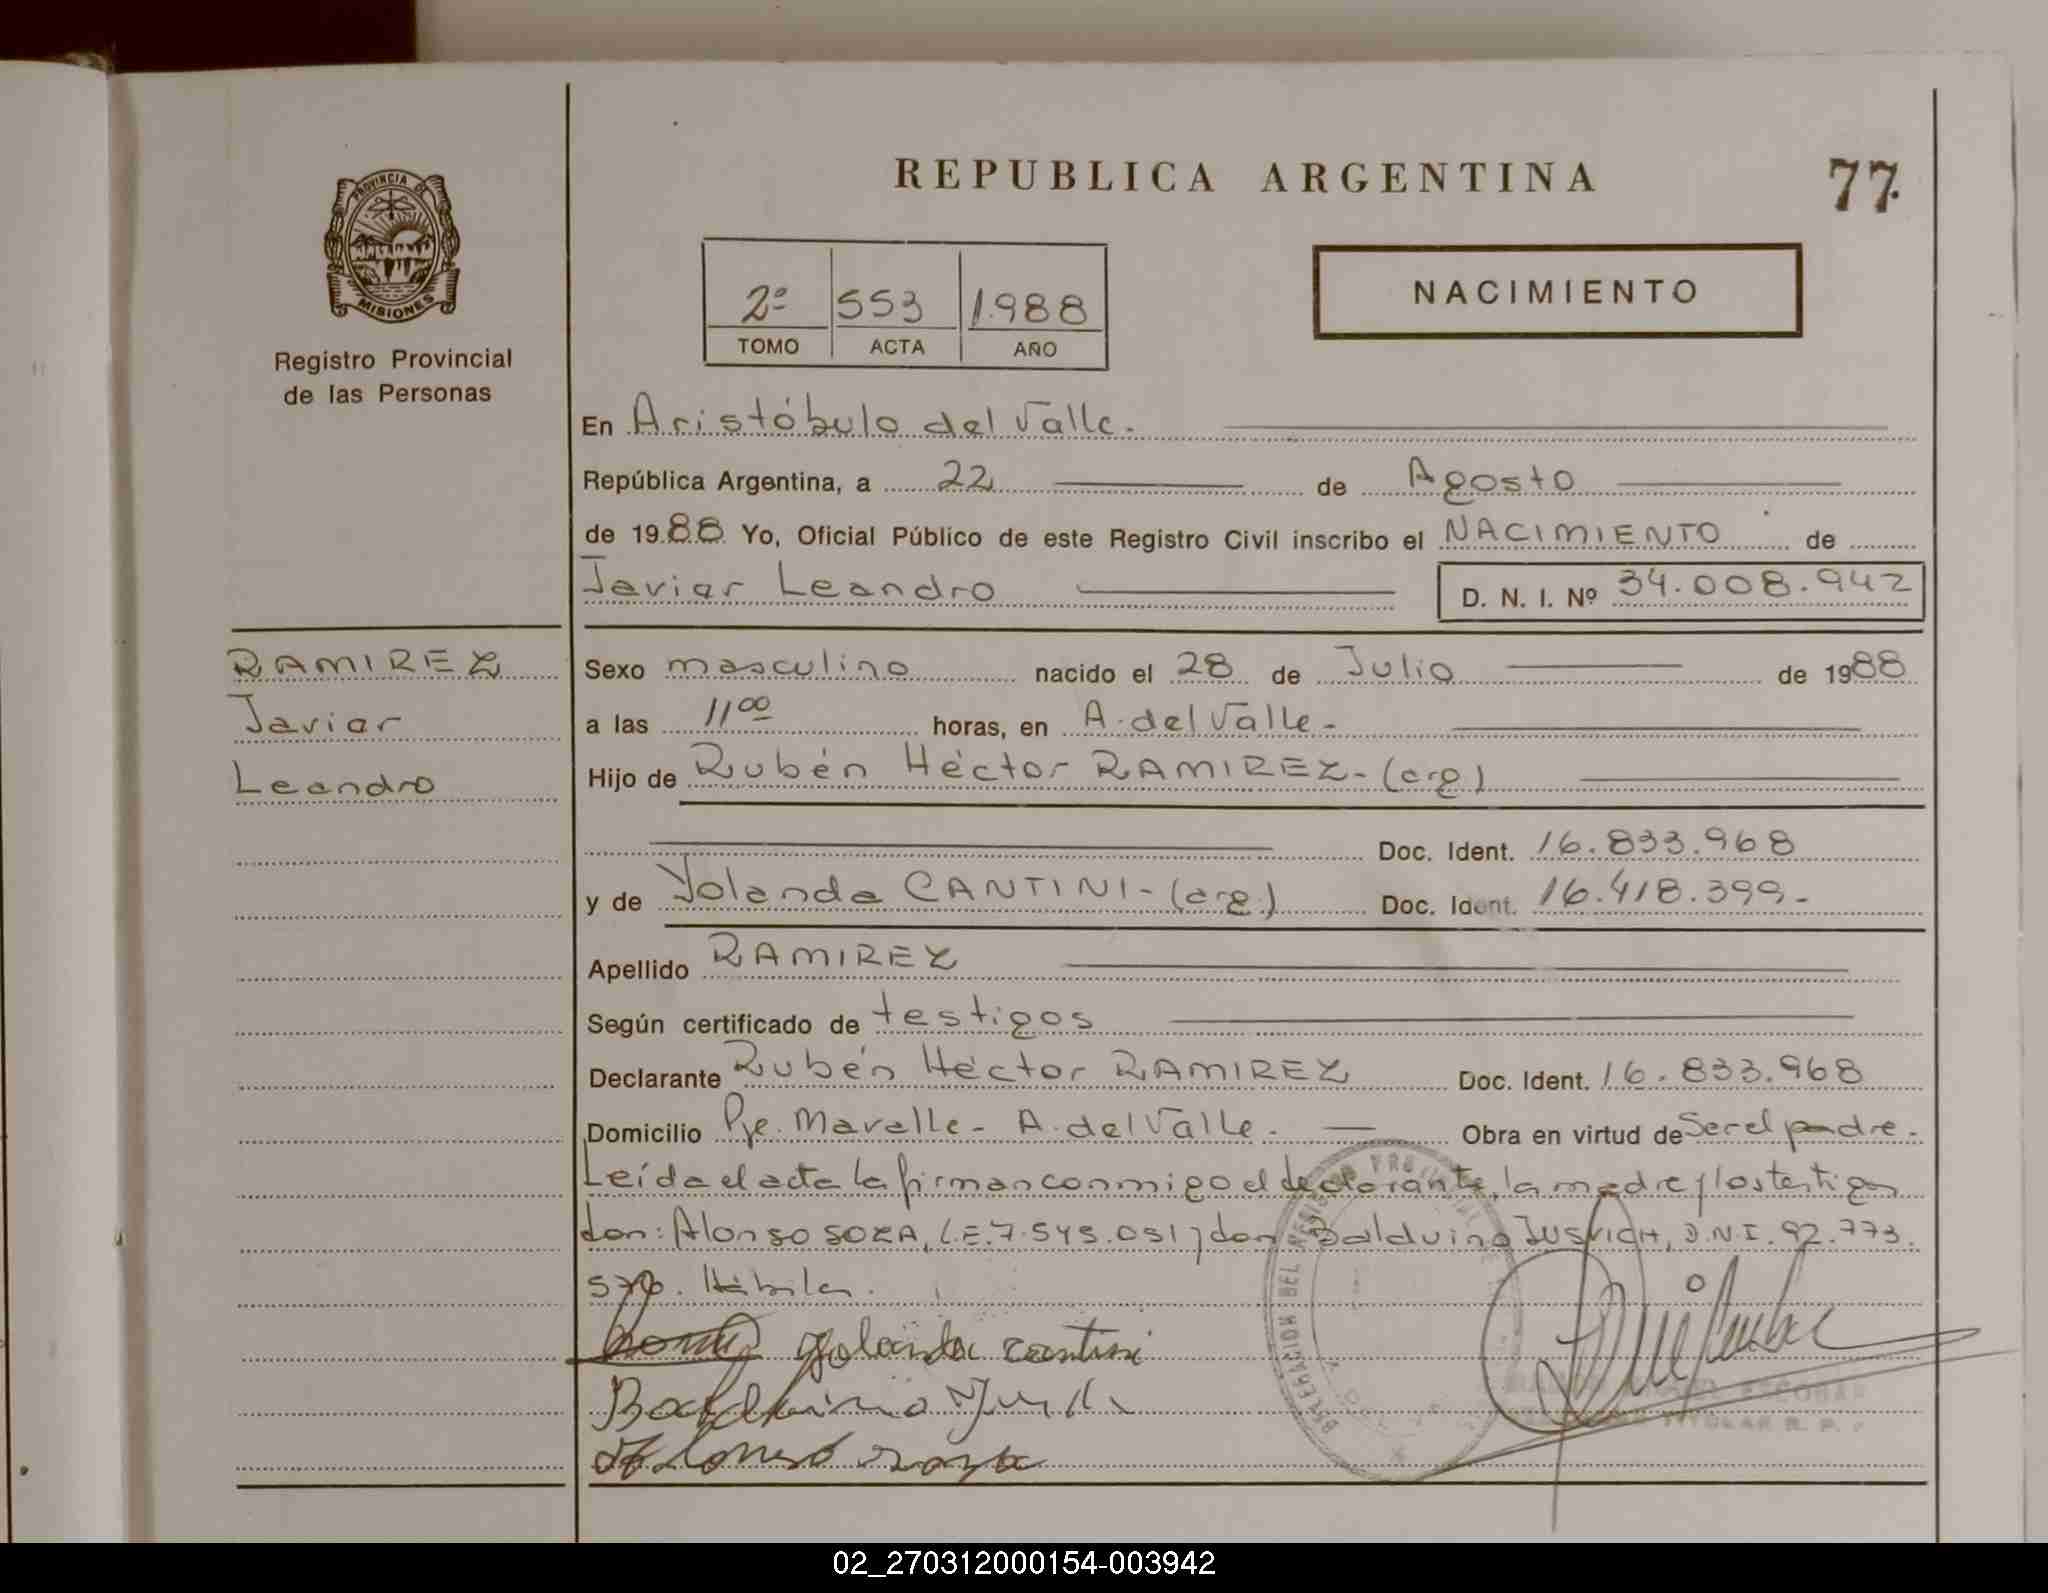 REPUBLICA ARGENTINA
77
PROVINCIA DE
MISIONES
Registro Provincial
de las Personas
2º 553 1.988
TOMO ACTA AÑO
NACIMIENTO
En Aristóbulo del Valle.
República Argentina, a 22 de Agosto
de 1988 Yo, Oficial Público de este Registro Civil inscribo el NACIMIENTO de
Javier Leandro D. N. I. Nº 34.008.942
RAMIREZ
Javier
Leandro
Sexo masculino nacido el 28 de Julio de 1988
a las 11 00 horas, en A. del Valle -
Hijo de Rubén Héctor RAMIREZ - (arg)
Doc. Ident. 16.833.968
y de Yolanda CANTINI - (arg.) Doc. Ident. 16.418.399 -
Apellido RAMIREZ
Según certificado de testigos
Declarante Rubén Héctor RAMIREZ Doc. Ident. 16.833.968
Domicilio Pje. Mavalle - A. del Valle. Obra en virtud de Ser el padre -
Leída el acta la firman conmigo el declarante, la madre y los testigos
don: Alonso SOZA, L.E. 7.545.051 y don Balduino JUSVICH, D.N.I. 92.773.
Hábiles.
Yolanda Cantini
Balduino
Alonso Soza
DELEGACION DEL REGISTRO
ESCOBAR
TITULAR R. P.
02_270312000154-003942